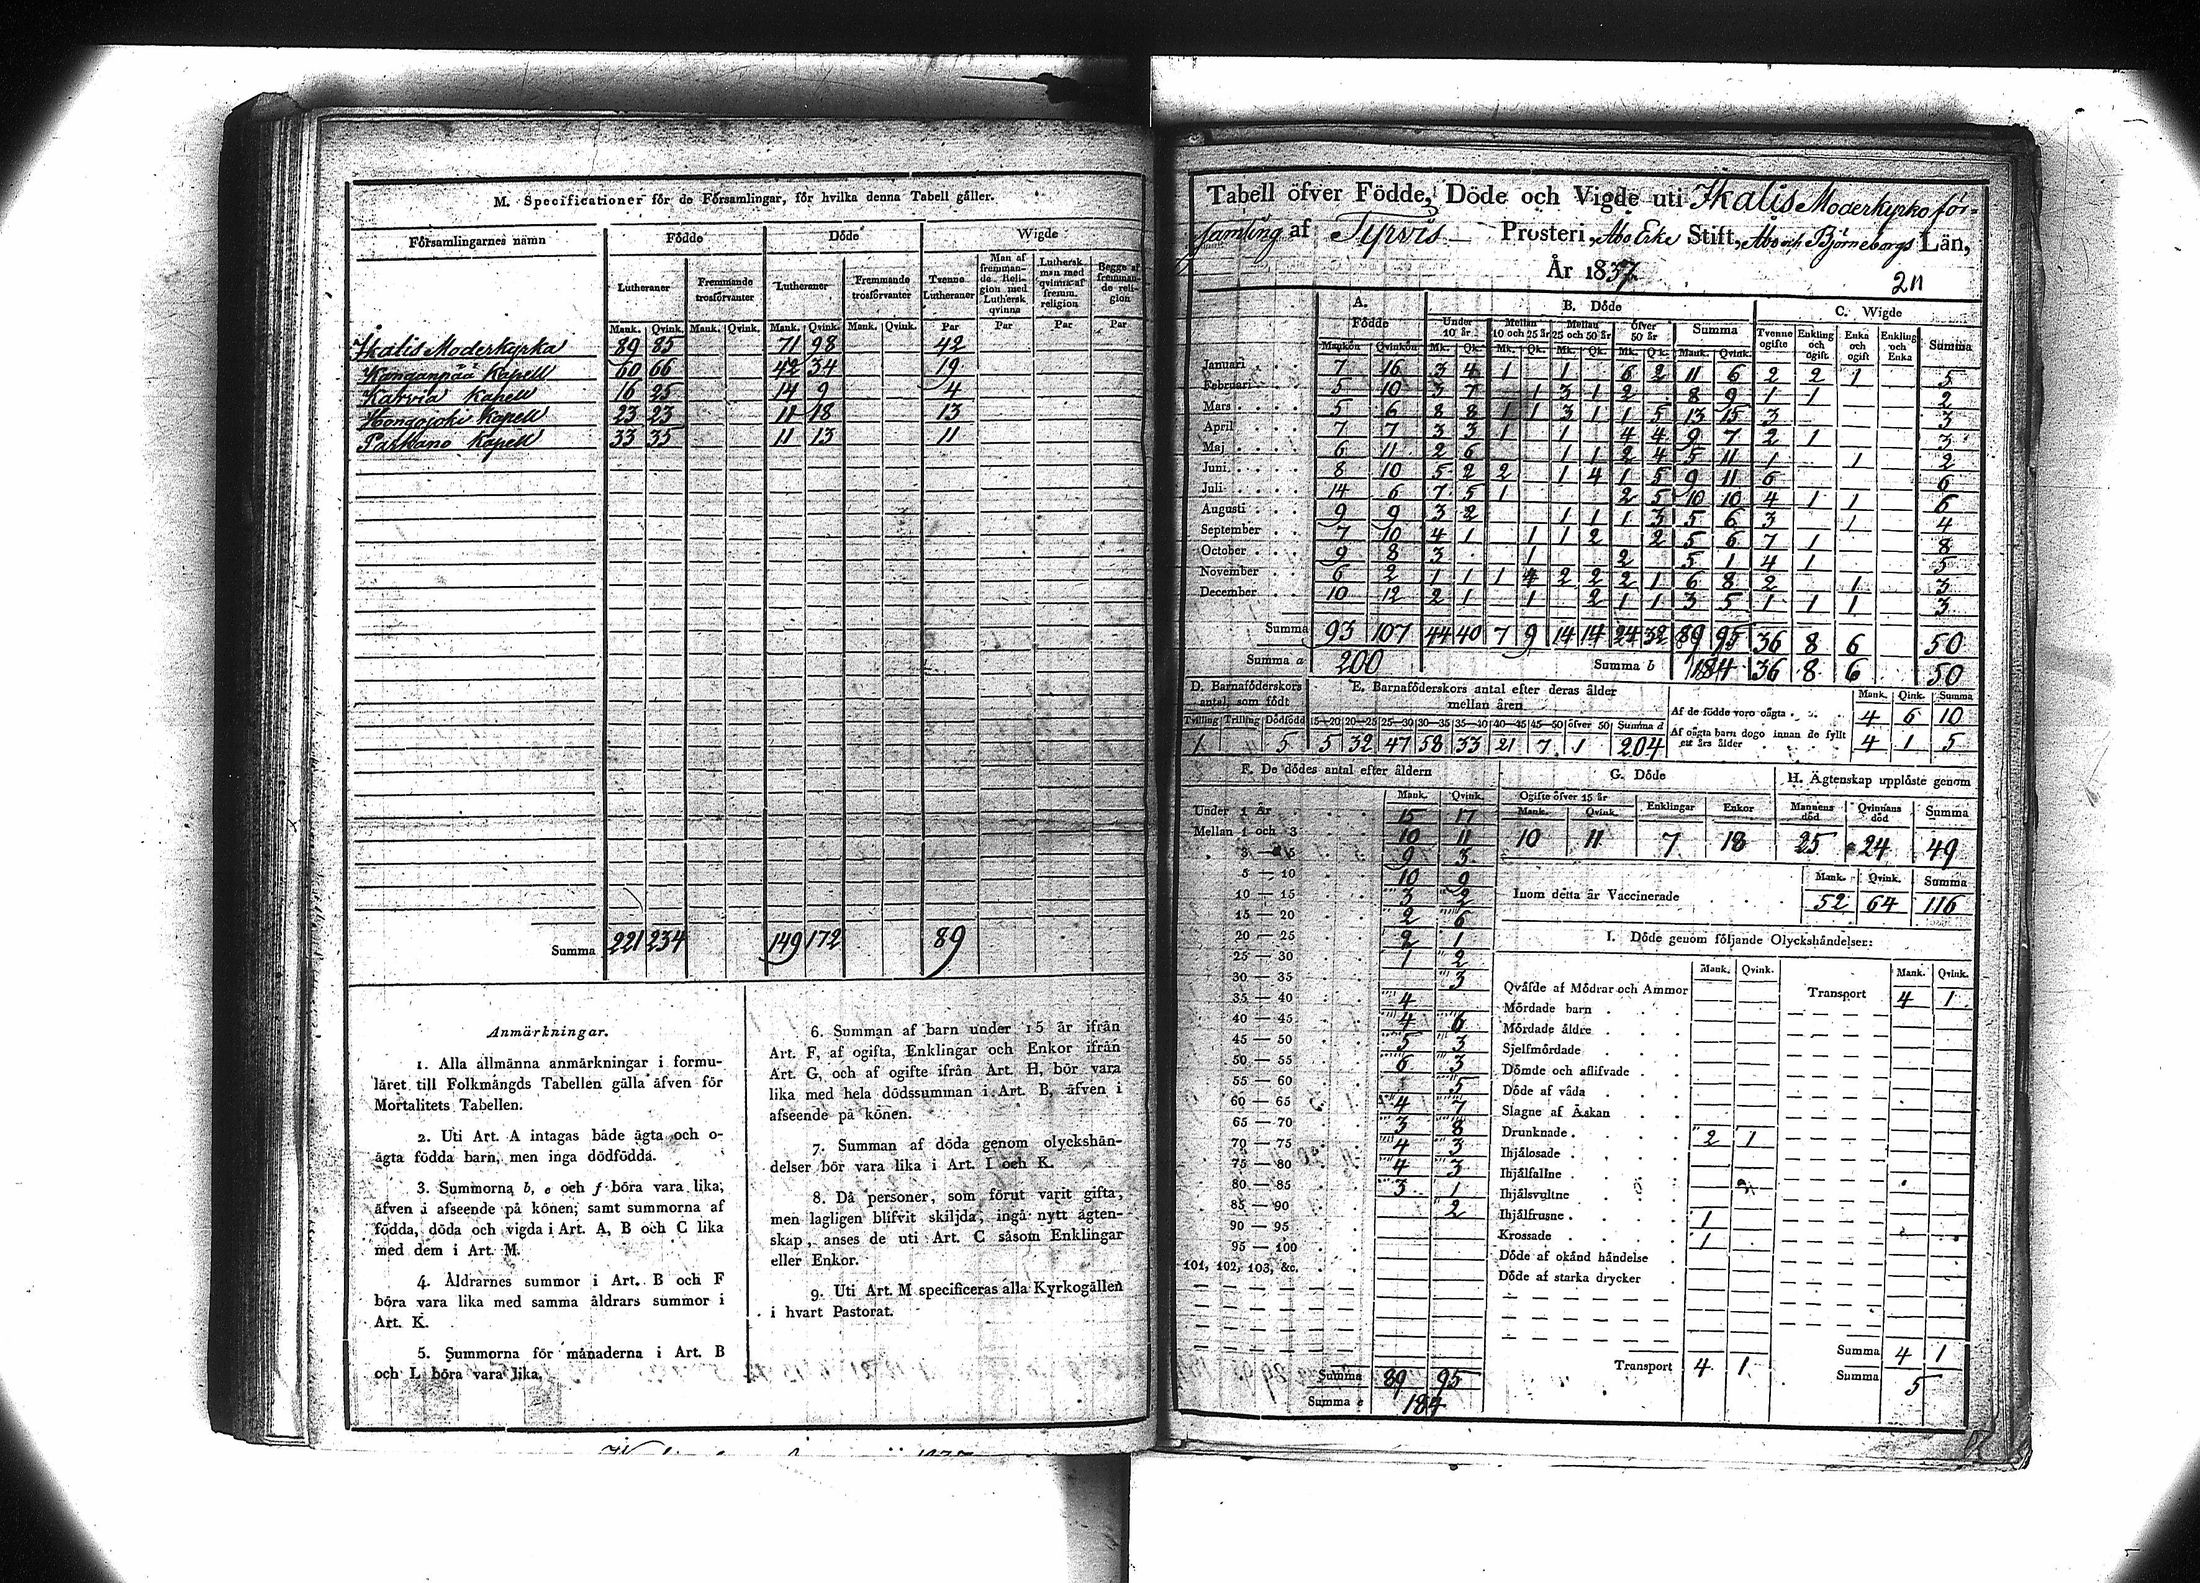 M. Specificationer för de Församlingar, för hvilka denna Tabell gäller.
Församlingarnes namn Födde Döde Wigde
Lutheraner Fremmande trosförvanter Lutheraner Fremmande trosförvanter Tvenne Lutheraner Man af fremmande Religion med Luthersk qvinna Luthersk man med qvinna af fremm. religion Begge af fremmande religion
Mank. Qvink. Mank. Qvink. Mank. Qvink. Mank. Qvink. Par Par Par Par
Ikalis Moderkyrka 89 85 71 98 42
Kanganpää Kapell 60 66 42 34 19
Karvia Kapell 16 25 14 9 4
Hongojoki Kapell 23 23 11 18 13
Parkano Kapell 33 35 11 13 11
Summa 221 234 149 172 89
Anmärkningar.
1. Alla allmänna anmärkningar i formu-
läret till Folkmängds Tabellen gälla äfven för
Mortalitets Tabellen.
2. Uti Art. A intagas både ägta och o-
ägta födda barn, men inga dödfödda.
3. Summorna b, e och f böra vara lika,
äfven i afseende på könen; samt summorna af
födda, döda och vigda i Art. A, B och C lika
med dem i Art. M.
4. Åldrarnes summor i Art. B och F
böra vara lika med samma åldrars summor i
Art. K.
5. Summorna för månaderna i Art. B
och L böra vara lika.
6. Summan af barn under 15 år ifrån
Art. F, af ogifta, Enklingar och Enkor ifrån
Art. G, och af ogifte ifrån Art. H, bör vara
lika med hela dödssumman i Art. B, äfven i
afseende på könen.
7. Summan af döda genom olyckshän-
delser bör vara lika i Art. I och K.
8. Då personer, som förut varit gifta,
men lagligen blifvit skiljda, ingå nytt ägten-
skap, anses de uti Art. C såsom Enklingar
eller Enkor.
9. Uti Art. M specificeras alla Kyrkogällen
i hvart Pastorat.
Tabell öfver Födde, Döde och Vigde uti Ikalis Moderkyrko för-
samling af Tyrvis Prosteri, Åbo Erke Stift, Åbo och Björneborgs Län,
År 1837.
211
A. Födde B. Döde C. Wigde
Under 10 år Mellan 10 och 25 år Mellan 25 och 50 år Öfver 50 år Summa Tvenne ogifte Enkling och ogift Enka och ogift Enkling och Enka Summa
Mankön Qvinkön Mk. Qk. Mk. Qk. Mk. Qk. Mk. Qk. Mank. Qvink.
Januari 7 16 3 4 1 1 6 2 11 6 2 2 1 5
Februari 5 10 3 7 1 3 1 2 8 9 1 1 2
Mars 5 6 8 8 1 1 3 1 1 5 13 15 3 3
April 7 7 3 3 1 1 4 4 9 7 2 1 3
Maj 6 11 2 6 1 1 2 4 5 11 1 1 2
Juni 8 10 5 2 2 1 4 1 5 9 11 6 6
Juli 14 6 7 5 1 2 5 10 10 4 1 1 6
Augusti 9 9 3 2 1 1 1 3 5 6 3 1 4
September 7 10 4 1 1 1 2 2 5 6 7 1 8
October 9 8 3 1 2 5 1 4 1 5
November 6 2 1 1 1 4 2 2 2 1 6 8 2 1 3
December 10 12 2 1 1 2 1 1 3 5 1 1 1 3
Summa 93 107 44 40 7 9 14 14 24 32 89 95 36 8 6 50
Summa a 200 Summa b 184 36 8 6 50
D. Barnaföderskors antal, som födt E. Barnaföderskors antal efter deras ålder mellan åren Mank. Qink. Summa
Tvilling Trilling Dödfödd 15—20 20—25 25—30 30—35 35—40 40—45 45—50 öfver 50 Summa d
Af de födde voro oägta 4 6 10
1 5 5 32 47 58 33 21 7 1 204
Af oägta barn dogo innan de fyllt ett års ålder 4 1 5
F. De dödes antal efter åldern
Mank. Qvink.
Under 1 år 15 17
Mellan 1 och 3 10 11
3 — 5 9 3
5 — 10 10 9
10 — 15 3 2
15 — 20 2 6
20 — 25 2 1
25 — 30 1 2
30 — 35 3
35 — 40 4
40 — 45 4 6
45 — 50 5 3
50 — 55 6 3
55 — 60 5
60 — 65 4 7
65 — 70 3 8
70 — 75 4 3
75 — 80 4 3
80 — 85 3 1
85 — 90 2
90 — 95
95 — 100
101, 102, 103, &c.
Summa 89 95
Summa e 184
G. Döde
Ogifte öfver 15 år Enklingar Enkor
Mank. Qvink.
10 11 7 18
H. Ägtenskap upplöste genom
Mannens död Qvinnans död Summa
25 24 49
Mank. Qvink. Summa
Inom detta år Vaccinerade 52 64 116
I. Döde genom följande Olyckshändelser:
Mank. Qvink. Mank. Qvink.
Qväfde af Mödrar och Ammor Transport 4 1
Mördade barn
Mördade äldre
Sjelfmördade
Dömde och aflifvade
Döde af våda
Slagne af Åskan
Drunknade 2 1
Ihjälosade
Ihjälfallne
Ihjälsvultne
Ihjälfrusne 1
Krossade 1
Döde af okänd händelse
Döde af starka drycker
Transport 4 1
Summa 4 1
Summa 5